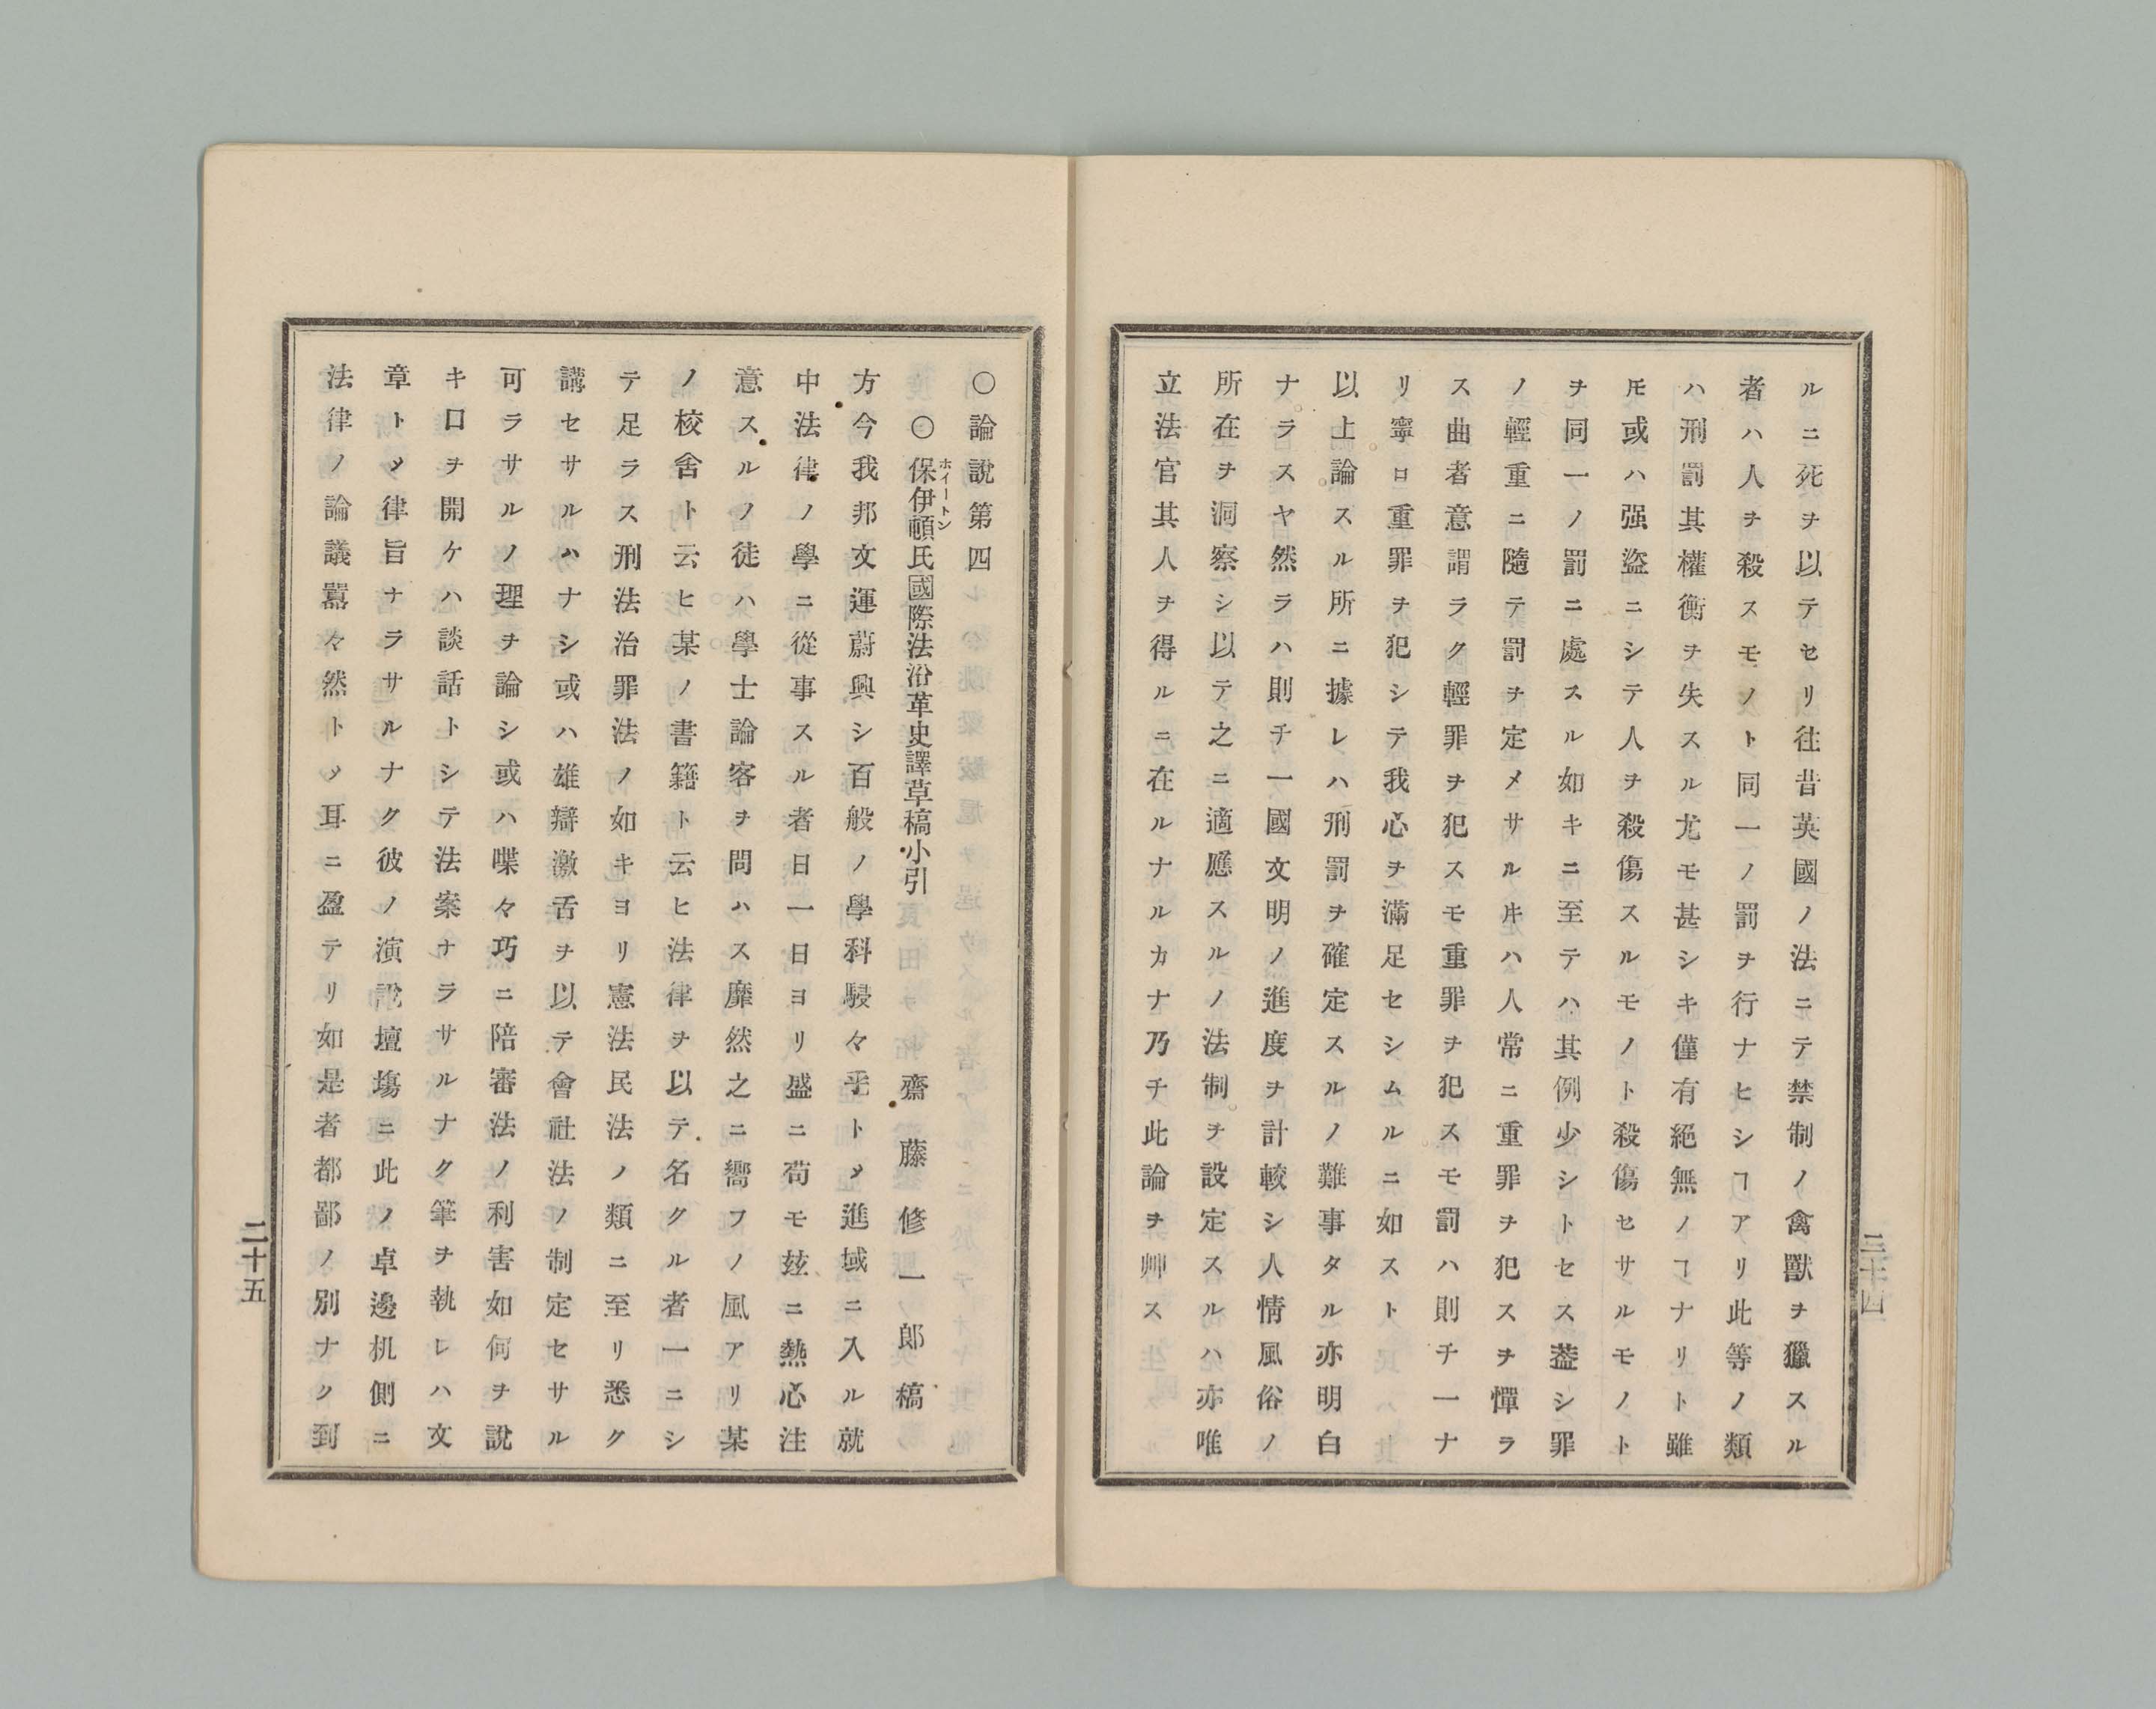 ルニ死ヲ以テセリ往昔英國ノ法ニテ禁制ノ禽獸ヲ獵スル
者ハ人ヲ殺スモノト同一ノ罰ヲ行ナヒシヿアリ此等ノ類
ハ刑罰其權衡ヲ失スル尤モ甚シキ僅有絕無ノヿナリト雖
𪜈或ハ强盜ニシテ人ヲ殺傷スルモノト殺傷セサルモノト
ヲ同一ノ罰ニ處スル如キニ至テハ其例少シトセス葢シ罪
ノ輕重ニ隨テ罰ヲ定メサルㇳキハ人常ニ重罪ヲ犯スヲ憚ラ
ス曲者意謂ラク輕罪ヲ犯スモ重罪ヲ犯スモ罰ハ則チ一ナ
リ寧ロ重罪ヲ犯シテ我心ヲ滿足セシムルニ如スト
以上論スル所ニ據レハ刑罰ヲ確定スルノ難事タル亦明白
ナラスヤ然ラハ則チ一國文明ノ進度ヲ計較シ人情風俗ノ
所在ヲ洞察シ以テ之ニ適應スルノ法制ヲ設定スルハ亦唯
立法官其人ヲ得ルニ在ルナルカナ乃チ此論ヲ艸ス
二十四
〇論說第四
〇保伊頓氏國際法沿革史譯草稿小引 齋藤修一郎稿
ホイートン
方今我邦文運蔚興シ百般ノ學科駸々乎トメ進域ニ入ル就
中法律ノ學ニ從事スル者日一日ヨリ盛ニ苟モ玆ニ熱心注
意スルノ徒ハ學士論客ヲ問ハス靡然之ニ嚮フノ風アリ某
ノ校舍ト云ヒ某ノ書籍ト云ヒ法律ヲ以テ名クル者一ニシ
テ足ラス刑法治罪法ノ如キヨリ憲法民法ノ類ニ至リ悉ク
講セサルハナシ或ハ雄辯激舌ヲ以テ會社法ノ制定セサル
可ラサルノ理ヲ論シ或ハ喋々巧ニ陪審法ノ利害如何ヲ說
キ口ヲ開ケハ談話トシテ法案ナラサルナク筆ヲ執レハ文
章トメ律旨ナラサルナク彼ノ演說壇塲ニ此ノ卓邊机側ニ
法律ノ論議囂々然トメ耳ニ盈テリ如是者都鄙ノ別ナク到
二十五